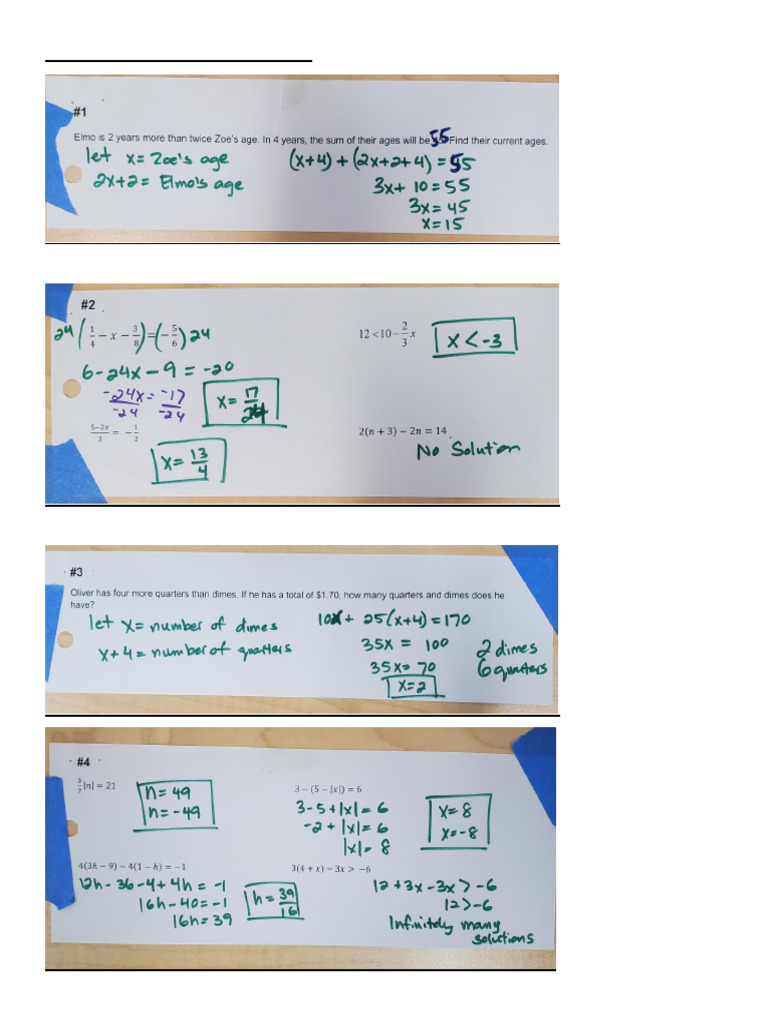 #1
Elmo is 2 years more than twice Zoe's age. In 4 years, the sum of their ages will be 55 Find their current ages.
let x= Zoe's age
2x+2= Elmo's age
(x+4)+(2x+2+4)=55
3x+10=55
3x=45
x=15
#2
24(1/4 - x - 3/8)=(-5/6)24
6-24x-9=-20
-24x=-17
-24 -24
x=17/24
12<10-2/3 x
x<-3
5-2x/3 = -1/2
x=13/4
2(n+3)-2n=14
No Solution
#3
Oliver has four more quarters than dimes. If he has a total of $1.70, how many quarters and dimes does he
have?
let x= number of dimes
x+4= number of quarters
10x+25(x+4)=170
35x= 100
35x=70
x=2
2 dimes
6 quarters
#4
3/7|n|=21
n=49
n=-49
3-(5-|x|)=6
3-5+|x|=6
-2+|x|=6
|x|=8
x=8
x=-8
4(3h-9)-4(1-h)=-1
12h-36-4+4h=-1
16h-40=-1
16h=39
h=39/16
3(4+x)-3x>-6
12+3x-3x>-6
12>-6
Infinitely many
solutions